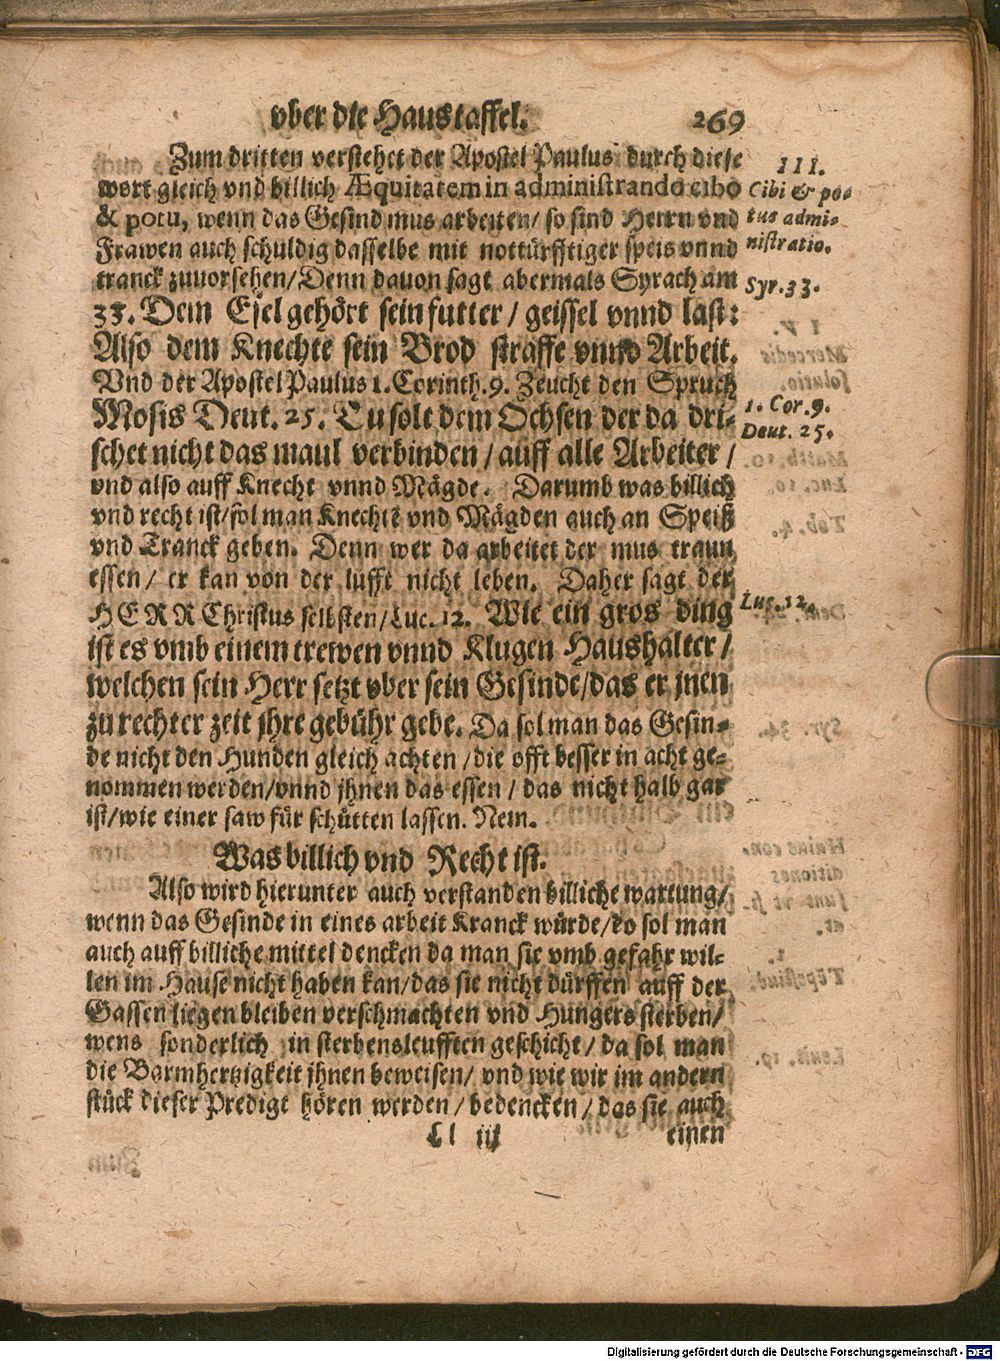 vber die Haustaffel. 269
Zum dritten verstehet der Apostel Paulus durch diese
wort gleich vnd billich Æquitatem in administrando cibo
& potu, wenn das Gesind mus arbeiten/ so sind Herrn vnd
Frawen auch schuldig dasselbe mit nottürfftiger speis vnnd
tranck zuuorsehen/Denn dauon sagt abermals Syrach am
33. Dem Esel gehört sein futter/ geissel vnnd last:
Also dem Knechte sein Brod straffe vnnd Arbeit.
Vnd der Apostel Paulus 1. Corinth. 9. Zeucht den Spruch
Mosis Deut. 25. Tu solt dem Ochsen der da dri-
schet nicht das maul verbinden/ auff alle Arbeiter/
vnd also auff Knecht vnnd Mägde. Darumb was billich
vnd recht ist/sol man Knechte vnd Mägden auch an Speiß
vnd Tranck geben. Denn wer da arbeitet der mus traun
essen/ er kan von der lufft nicht leben. Daher sagt der
HERR Christus selbsten/Luc. 12. Wie ein gros ding
ist es vmb einem trewen vnnd Klugen Haushalter/
welchen sein Herr setzt vber sein Gesinde/das er jnen
zu rechter zeit jhre gebühr gebe. Da sol man das Gesin-
de nicht den Hunden gleich achten/die offt besser in acht ge-
nommen werden/vnnd jhnen das essen/ das nicht halb gar
ist/wie einer saw für schütten lassen. Nein.
Was billich vnd Recht ist.
Also wird hierunter auch verstanden billiche wartung/
wenn das Gesinde in eines arbeit Kranck würde/do sol man
auch auff billiche mittel dencken da man sie vmb gefahr wil-
len im Hause nicht haben kan/das sie nicht dürffen auff der
Gassen liegen bleiben verschmachten vnd Hungers sterben/
wens sonderlich in sterbensleufften geschicht/ da sol man
die Barmhertzigkeit jhnen beweisen/ vnd wie wir im andern
stück dieser Predigt hören werden/ bedencken/ das sie auch
Ll iij einen
III.
Cibi & po-
tus admi-
nistratio.
Syr. 33.
1. Cor. 9.
Deut. 25.
Luc. 12.
Digitalisierung gefördert durch die Deutsche Forschungsgemeinschaft - DFG